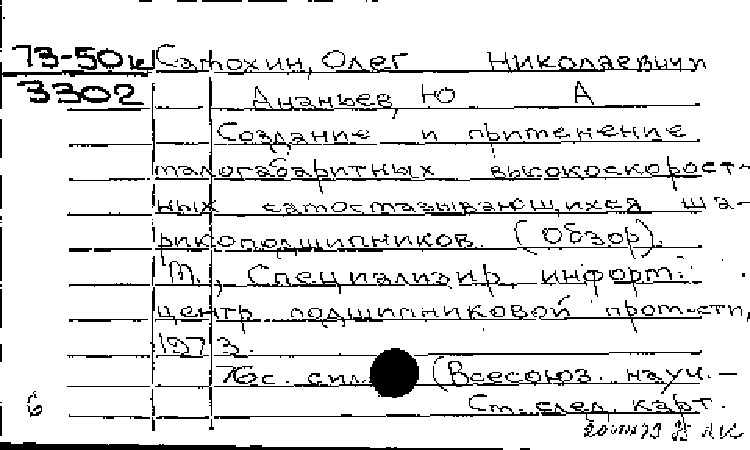 73-50к Сатохин, Олег Николаевич и
3302 Ананьев, Ю А
Создание и применение
малогабаритных высокоскорост-
ных самосмазывающихся ша-
рикоподшипников. (Обзор).
М., Специализир. информ.
центр подшипниковой пром-сти,
1973.
76с. с ил. (Всесоюз. науч.-
6 Ст.слел. карт.